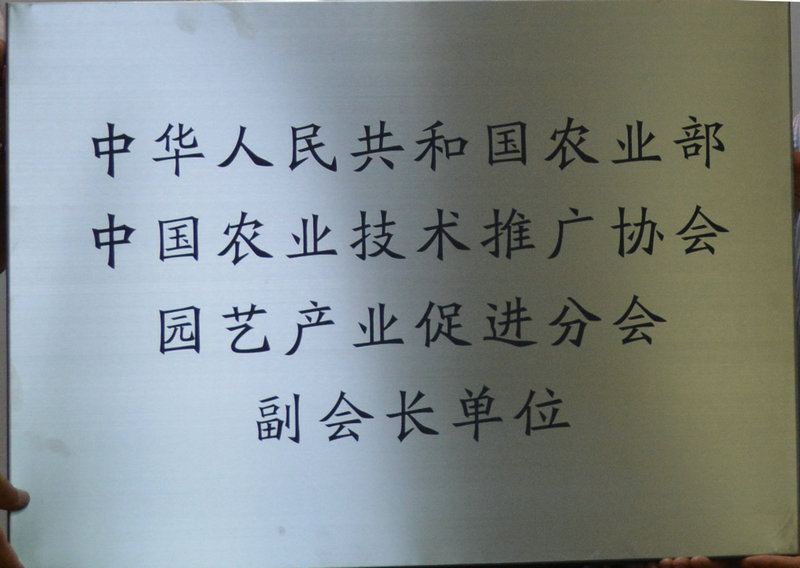 中华人民共和国农业部
中国农业技术推广协会
园艺产业促进分会
副会长单位